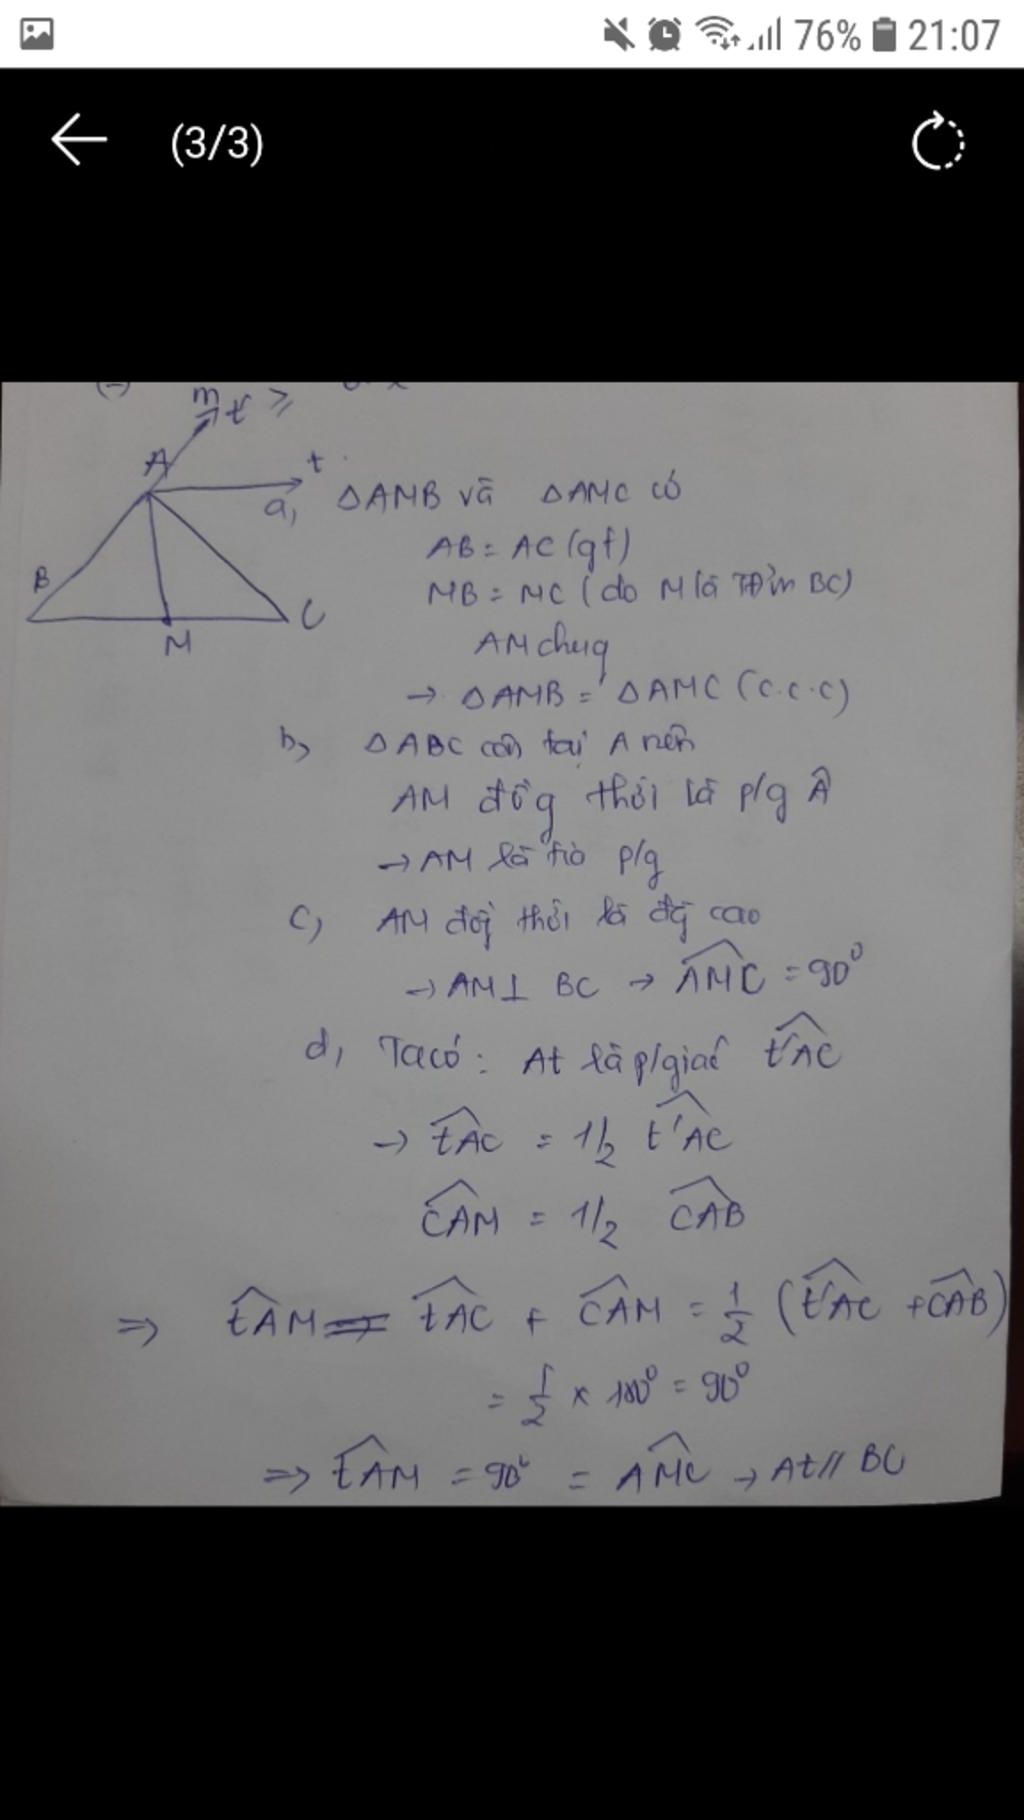 76% 21:07
(3/3)
A
t
B
M
C
a, ΔAMB và ΔAMC có
AB = AC (gt)
MB = MC (do M là TĐ'm BC)
AM chug
→ ΔAMB = ΔAMC (c.c.c)
b, ΔABC cân tại A nên
AM đồg thời là p/g Â
→ AM là tia p/g
c, AM đồg thời là đg cao
→ AM ⊥ BC → AMC = 90°
d, Ta có : At là p/giác t'AC
→ tAC = 1/2 t'AC
CAM = 1/2 CAB
⇒ tAM = tAC + CAM = 1/2 (t'AC + CAB)
= 1/2 × 180° = 90°
⇒ tAM = 90° = AMC → At // BC